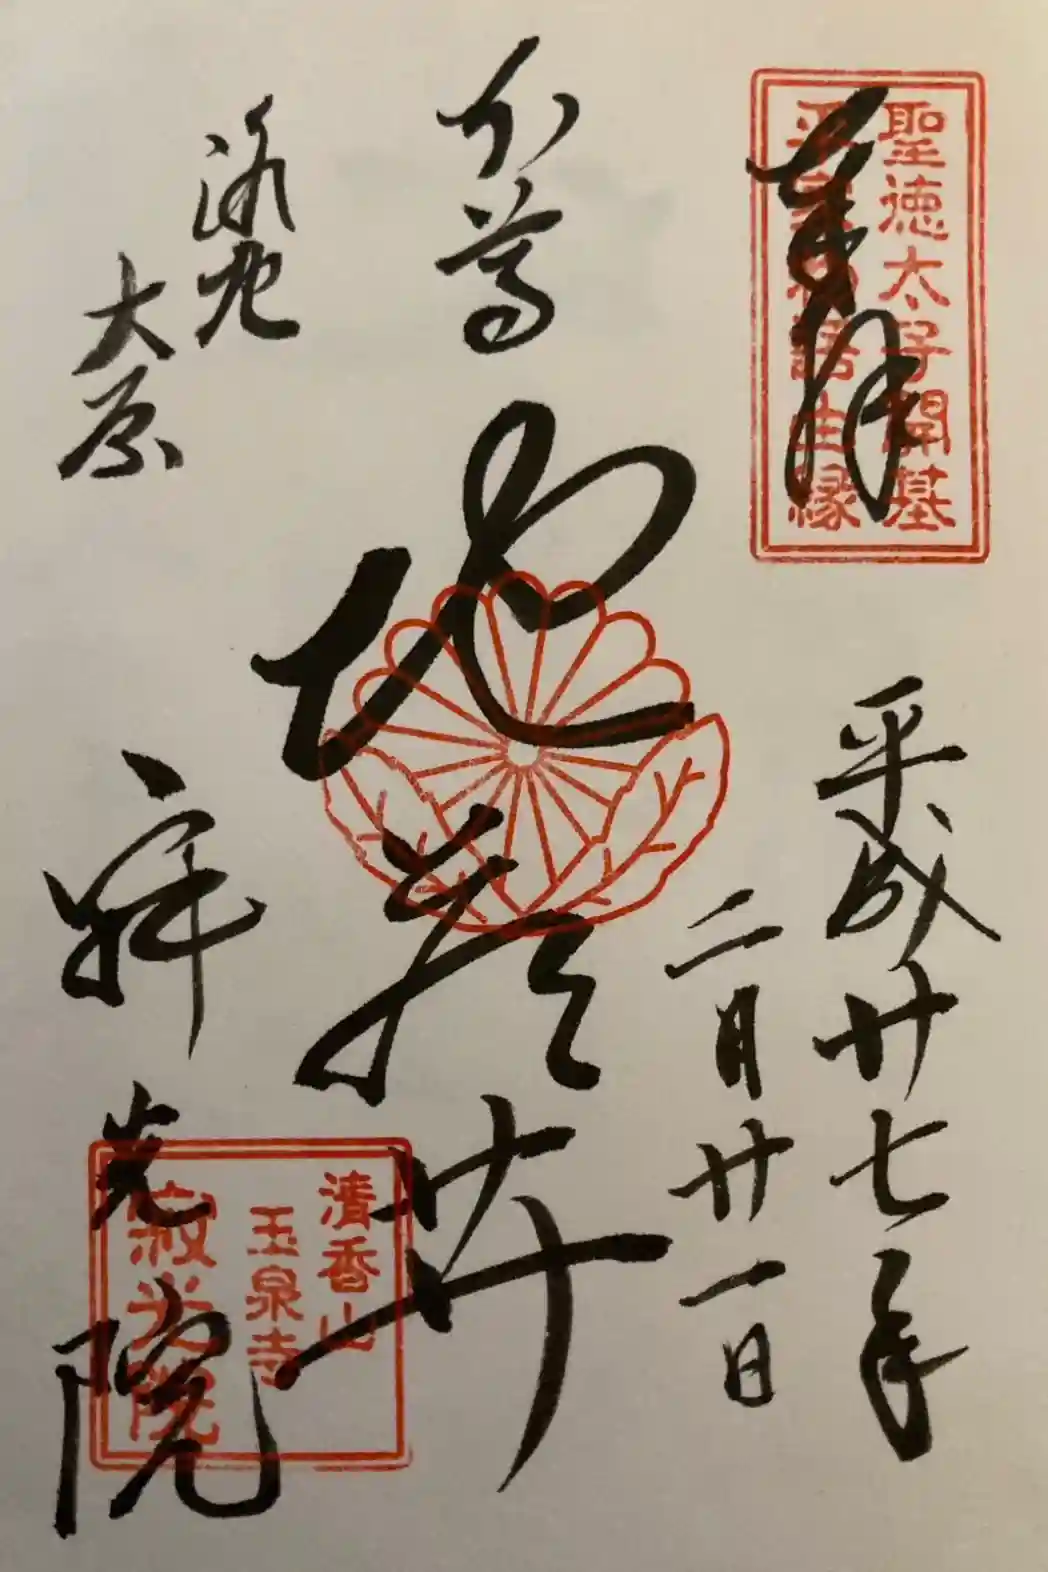 聖徳太子開基
平家物語由縁
奉拝
平成廿七年
二月廿一日
本尊
地蔵尊
洛北
大原
寂光院
清香山
玉泉寺
寂光院